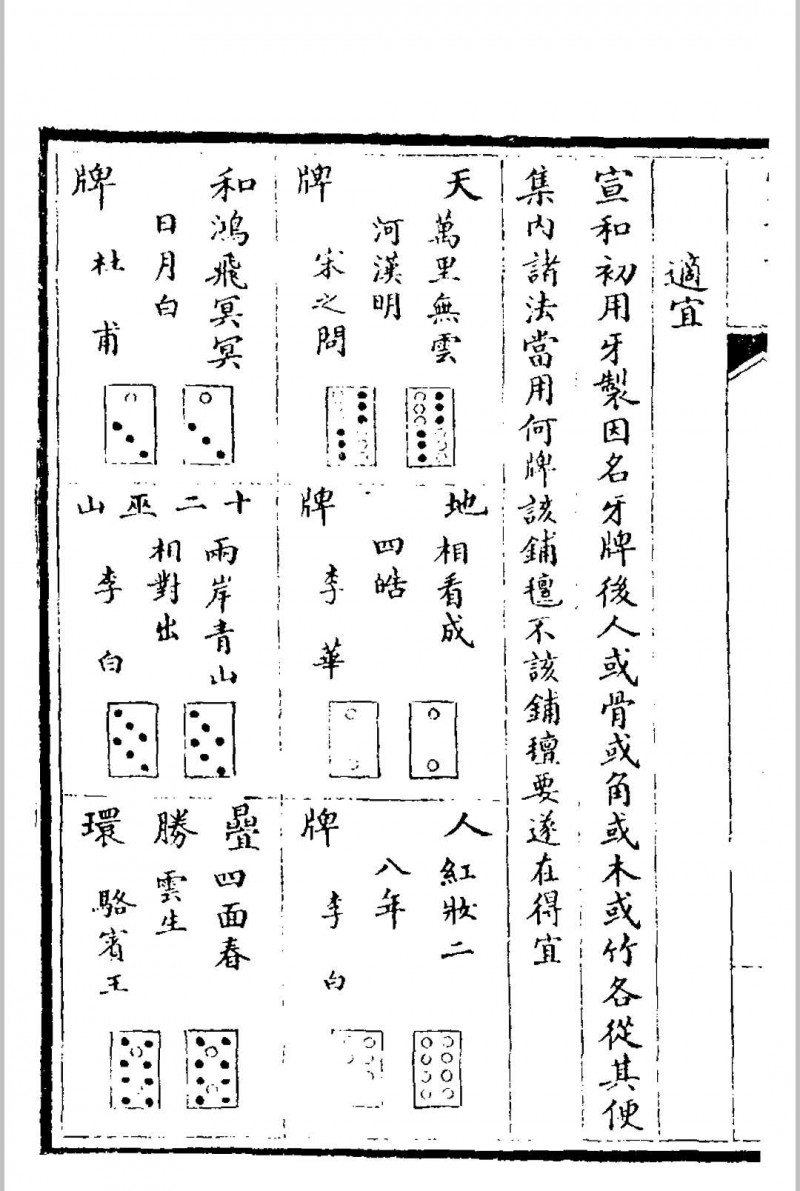 適宜
宣和初用牙製因名牙牌後人或骨或角或木或竹各從其便
集内諸法當用何牌該鋪氊不該鋪氊要遂在得宜
天牌
萬里無雲
河漢明
宋之問
地牌
相看成
四皓
李華
人牌
紅妝二
八年
李白
和牌
鴻飛冥冥
日月白
杜甫
十二巫山
兩岸青山
相對出
李白
疊勝環
四面春
雲生
駱賓王